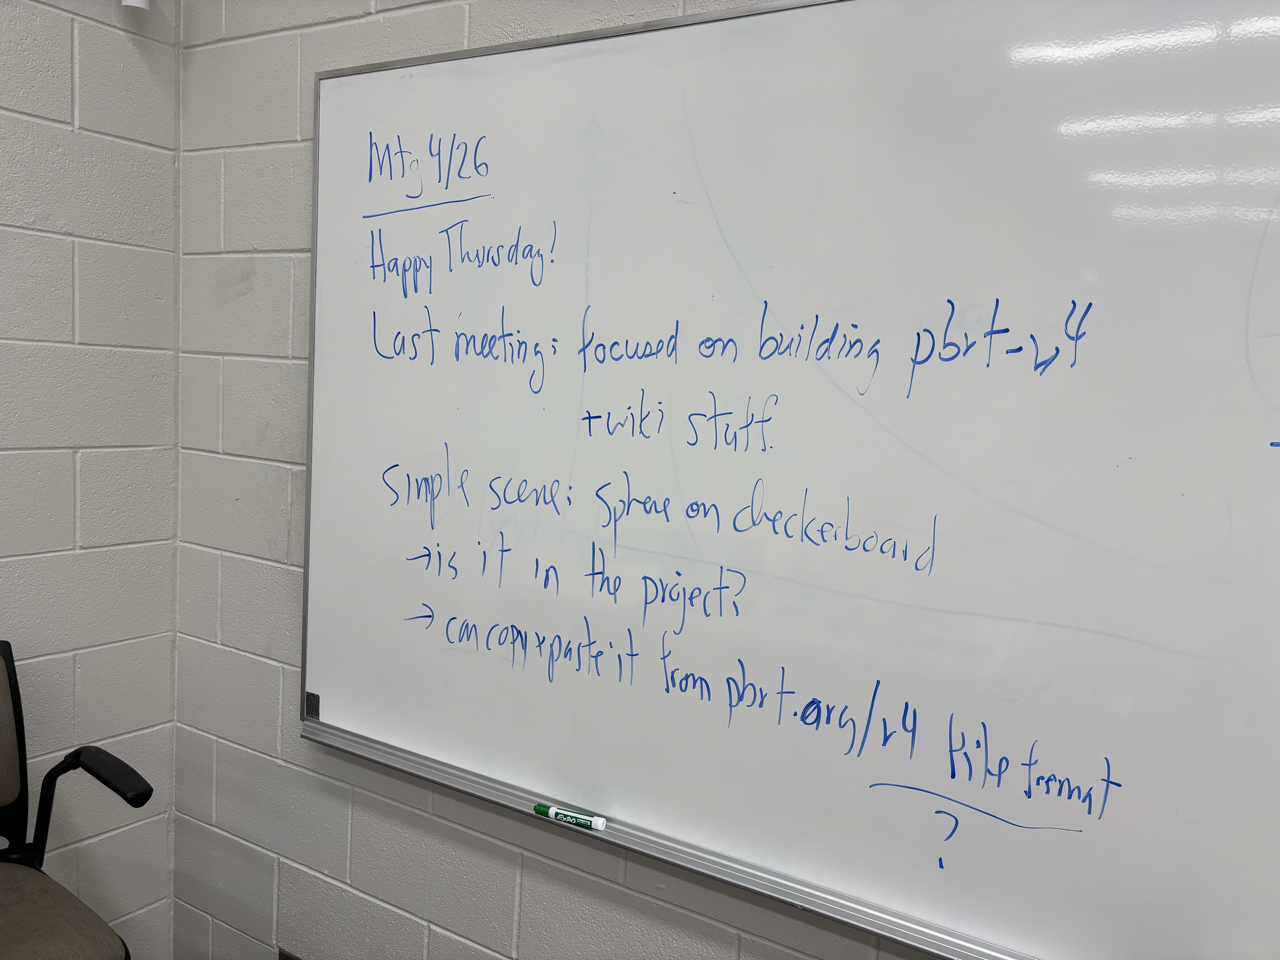 Mtg 4/26
Happy Thursday!
Last meeting: focused on building pbrt-v4
+wiki stuff.
Simple scene: sphere on checkerboard
→is it in the project?
→ can copy+paste it from pbrt.org/v4 file format
?
EXPO